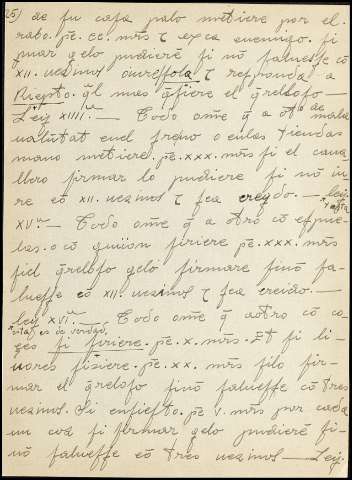 25) de su casa palo metiere por el
rabo. pe. CC. mrs τ exca enemigo. si
mar gelo pudiere si nō salvesse cō
XII. vezinos τ responda a
Riepto. q̄l mas q̄siere el q̄reloso —
Leij XIIII.ª — Todo om̄e q̄ a otº de mala
voluntat en el freno o en las riendas
mano metiere. pe. XXX. mrs si el cava
llero firmar lo pudiere si nō iu
re cō XII. vezinos τ sea creydo. — Leij
XV.ª — Todo om̄e q̄ a otro cō espue
las. o cō guion firiere pe. XXX. mrs
si el q̄reloso gelo firmare sinō sa
luesse cō XII. vezinos τ sea creido. —
Leij XVI.ª — Todo om̄e q̄ a otro cō co
esta es de verdad,
ces si firiere. pe. X. mrs. Et si li
vores fisiere. pe. XX. mrs si lo fir
mar el q̄reloso sinō salvesse cō tres
vezinos. Si enfiesto. pe V. mrs por cada
un coz si firmar gelo pudiere si
nō salvesse cō tres vezinos — Leij.